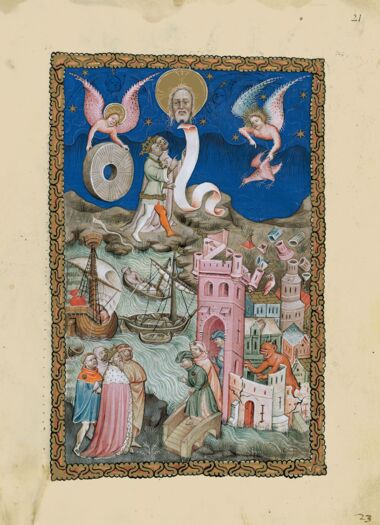 21
23